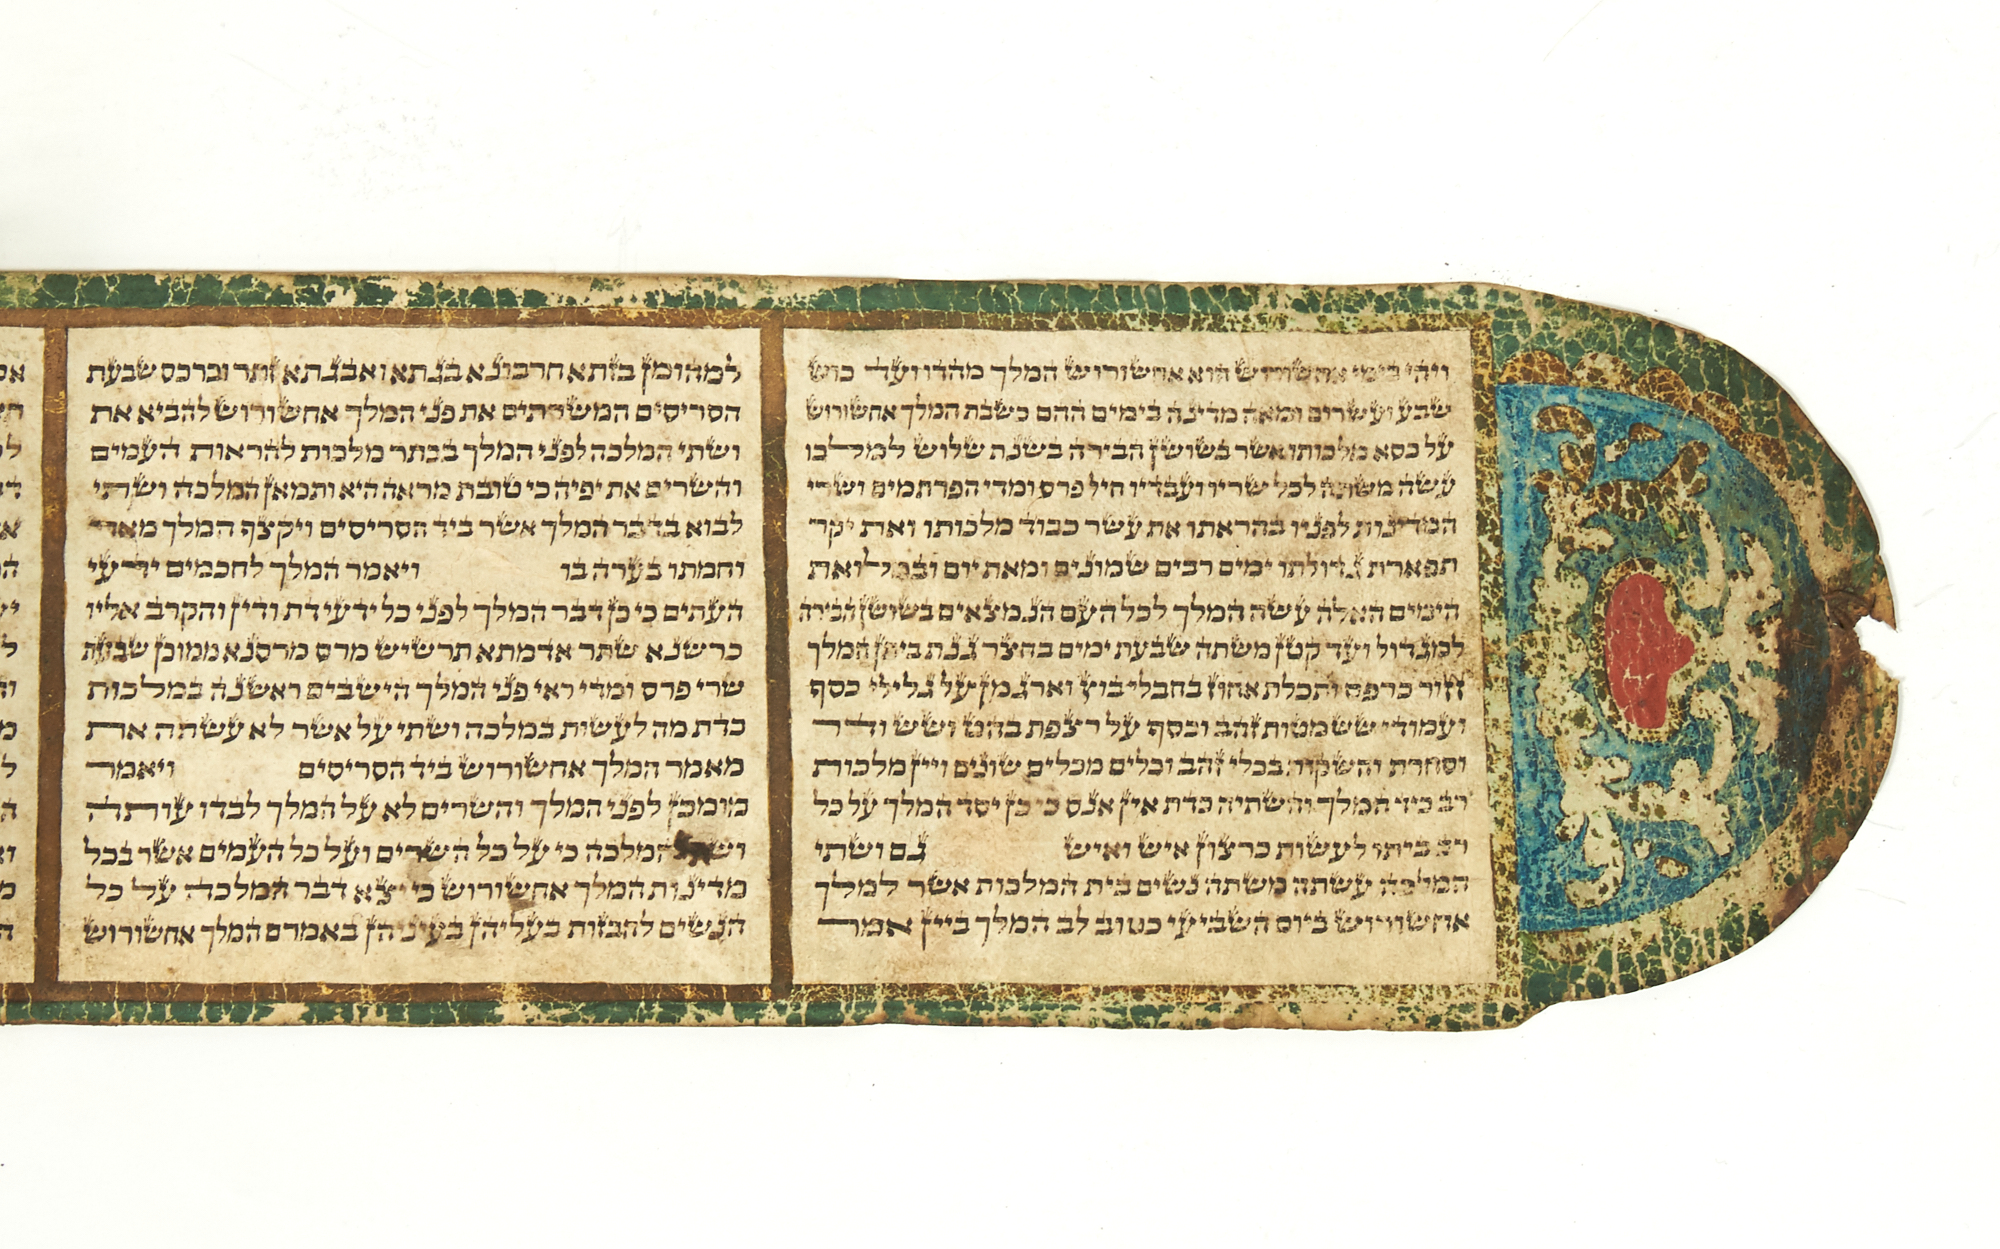 ויהי בימי אחשורוש הוא אחשורוש המלך מהדו ועד כוש
שבע ועשרים ומאה מדינה בימים ההם כשבת המלך אחשורוש
על כסא מלכותו אשר בשושן הבירה בשנת שלוש למלכו
עשה משתה לכל שריו ועבדיו חיל פרס ומדי הפרתמים ושרי
המדינות לפניו בהראתו את עשר כבוד מלכותו ואת יקר
תפארת גדולתו ימים רבים שמונים ומאת יום ובמלואת
הימים האלה עשה המלך לכל העם הנמצאים בשושן הבירה
למגדול ועד קטן משתה שבעת ימים בחצר גנת ביתן המלך
חור כרפס ותכלת אחוז בחבלי בוץ וארגמן על גלילי כסף
ועמודי שש מטות זהב וכסף על רצפת בהט ושש ודר
וסחרת והשקות בכלי זהב וכלים מכלים שונים ויין מלכות
רב כיד המלך והשתיה כדת אין אנס כי כן יסד המלך על כל
רב ביתו לעשות כרצון איש ואיש גם ושתי
המלכה עשתה משתה נשים בית המלכות אשר למלך
אחשורוש ביום השביעי כטוב לב המלך ביין אמר
למהומן בזתא חרבונא בגתא ואבגתא זתר וכרכס שבעת
הסריסים המשרתים את פני המלך אחשורוש להביא את
ושתי המלכה לפני המלך בכתר מלכות להראות העמים
והשרים את יפיה כי טובת מראה היא ותמאן המלכה ושתי
לבוא בדבר המלך אשר ביד הסריסים ויקצף המלך מאד
וחמתו בערה בו ויאמר המלך לחכמים ידעי
העתים כי כן דבר המלך לפני כל ידעי דת ודין והקרב אליו
כרשנא שתר אדמתא תרשיש מרס מרסנא ממוכן שבעת
שרי פרס ומדי ראי פני המלך הישבים ראשנה במלכות
כדת מה לעשות במלכה ושתי על אשר לא עשתה את
מאמר המלך אחשורוש ביד הסריסים ויאמר
מומכן לפני המלך והשרים לא על המלך לבדו עותה
ושתי המלכה כי על כל השרים ועל כל העמים אשר בכל
מדינות המלך אחשורוש כי יצא דבר המלכה על כל
הנשים להבזות בעליהן בעיניהן באמרם המלך אחשורוש